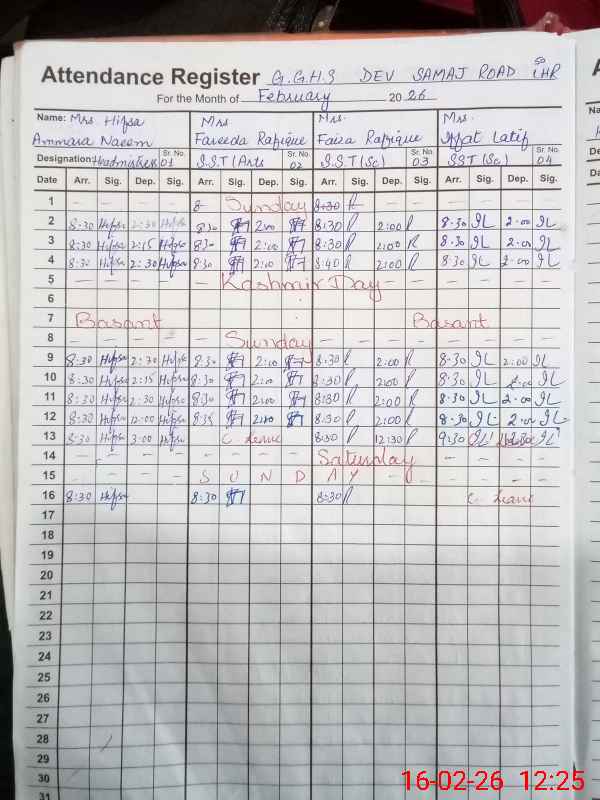 Attendance Register G.G.H.S DEV SAMAJ ROAD LHR
For the Month of February 2026
Name: Mrs Hifsa Ammara Naeem | Mrs Fareeda Rafique | Mrs. Faiza Rafique | Mrs. Iffat Latif
Designation: Headmistress Sr. No. 01 | S.S.T (Arts Sr. No. 02 | S.S.T (Sc) Sr. No. 03 | SST (Sc) Sr. No. 04
Date Arr. Sig. Dep. Sig. Arr. Sig. Dep. Sig. Arr. Sig. Dep. Sig. Arr. Sig. Dep. Sig.
1 Sunday 8:30
2 8:30 Hifsa 2:30 Hifsa 8:30 2:00 8:30 R 2:00 R 8:30 IL 2:00 IL
3 8:30 Hifsa 2:15 Hifsa 8:30 2:00 8:30 R 2:00 R 8:30 IL 2:00 IL
4 8:30 Hifsa 2:30 Hifsa 8:30 2:00 8:40 R 2:00 R 8:30 IL 2:00 IL
5 Kashmir Day
6
7 Basant Basant
8 Sunday
9 8:30 Hifsa 2:30 Hifsa 8:30 2:00 8:30 R 2:00 R 8:30 IL 2:00 IL
10 8:30 Hifsa 2:15 Hifsa 8:30 2:00 8:30 R 2:00 R 8:30 IL 2:00 IL
11 8:30 Hifsa 2:30 Hifsa 8:30 2:00 8:30 R 2:00 R 8:30 IL 2:00 IL
12 8:30 Hifsa 12:00 Hifsa 8:35 2:00 8:30 R 2:00 R 8:30 IL 2:00 IL
13 8:30 Hifsa 3:00 Hifsa C. Leave 8:30 R 12:30 R 9:30 IL IL
14 Saturday
15 SUNDAY
16 8:30 Hifsa 8:30 8:30 R C. Leave
17
18
19
20
21
22
23
24
25
26
27
28
29
30
31
16-02-26 12:25